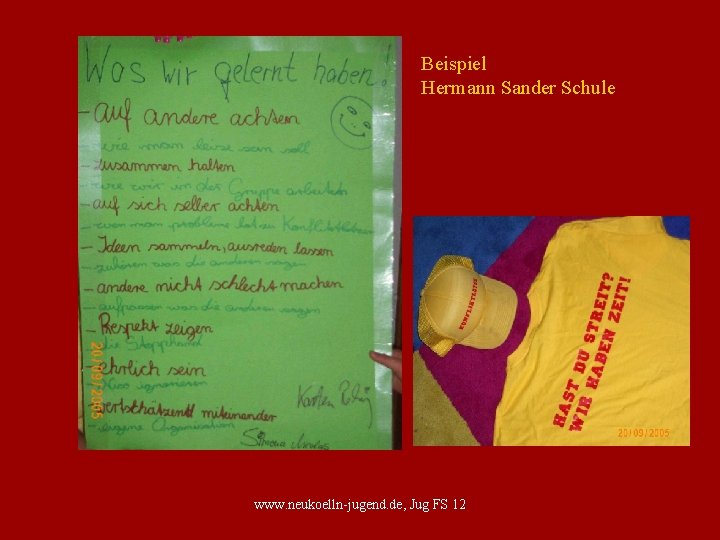 Was wir gelernt haben!
- auf andere achten
- wie man leise sein soll
- zusammen halten
- wie wir in der Gruppe arbeiten
- auf sich selber achten
- wen man probleme hat zu
- Ideen sammeln, ausreden lassen
- zuhören was die anderen sagen
- andere nicht schlecht machen
- aufpassen was die anderen sagen
- Respekt zeigen
- die
- ehrlich sein
- ignorieren
- wertschätzend miteinander
- eigene Organisation
Karsten
Simona
20/09/2005
Beispiel
Hermann Sander Schule
HAST DU STREIT?
WIR HABEN ZEIT!
20/09/2005
www.neukoelln-jugend.de, Jug FS 12